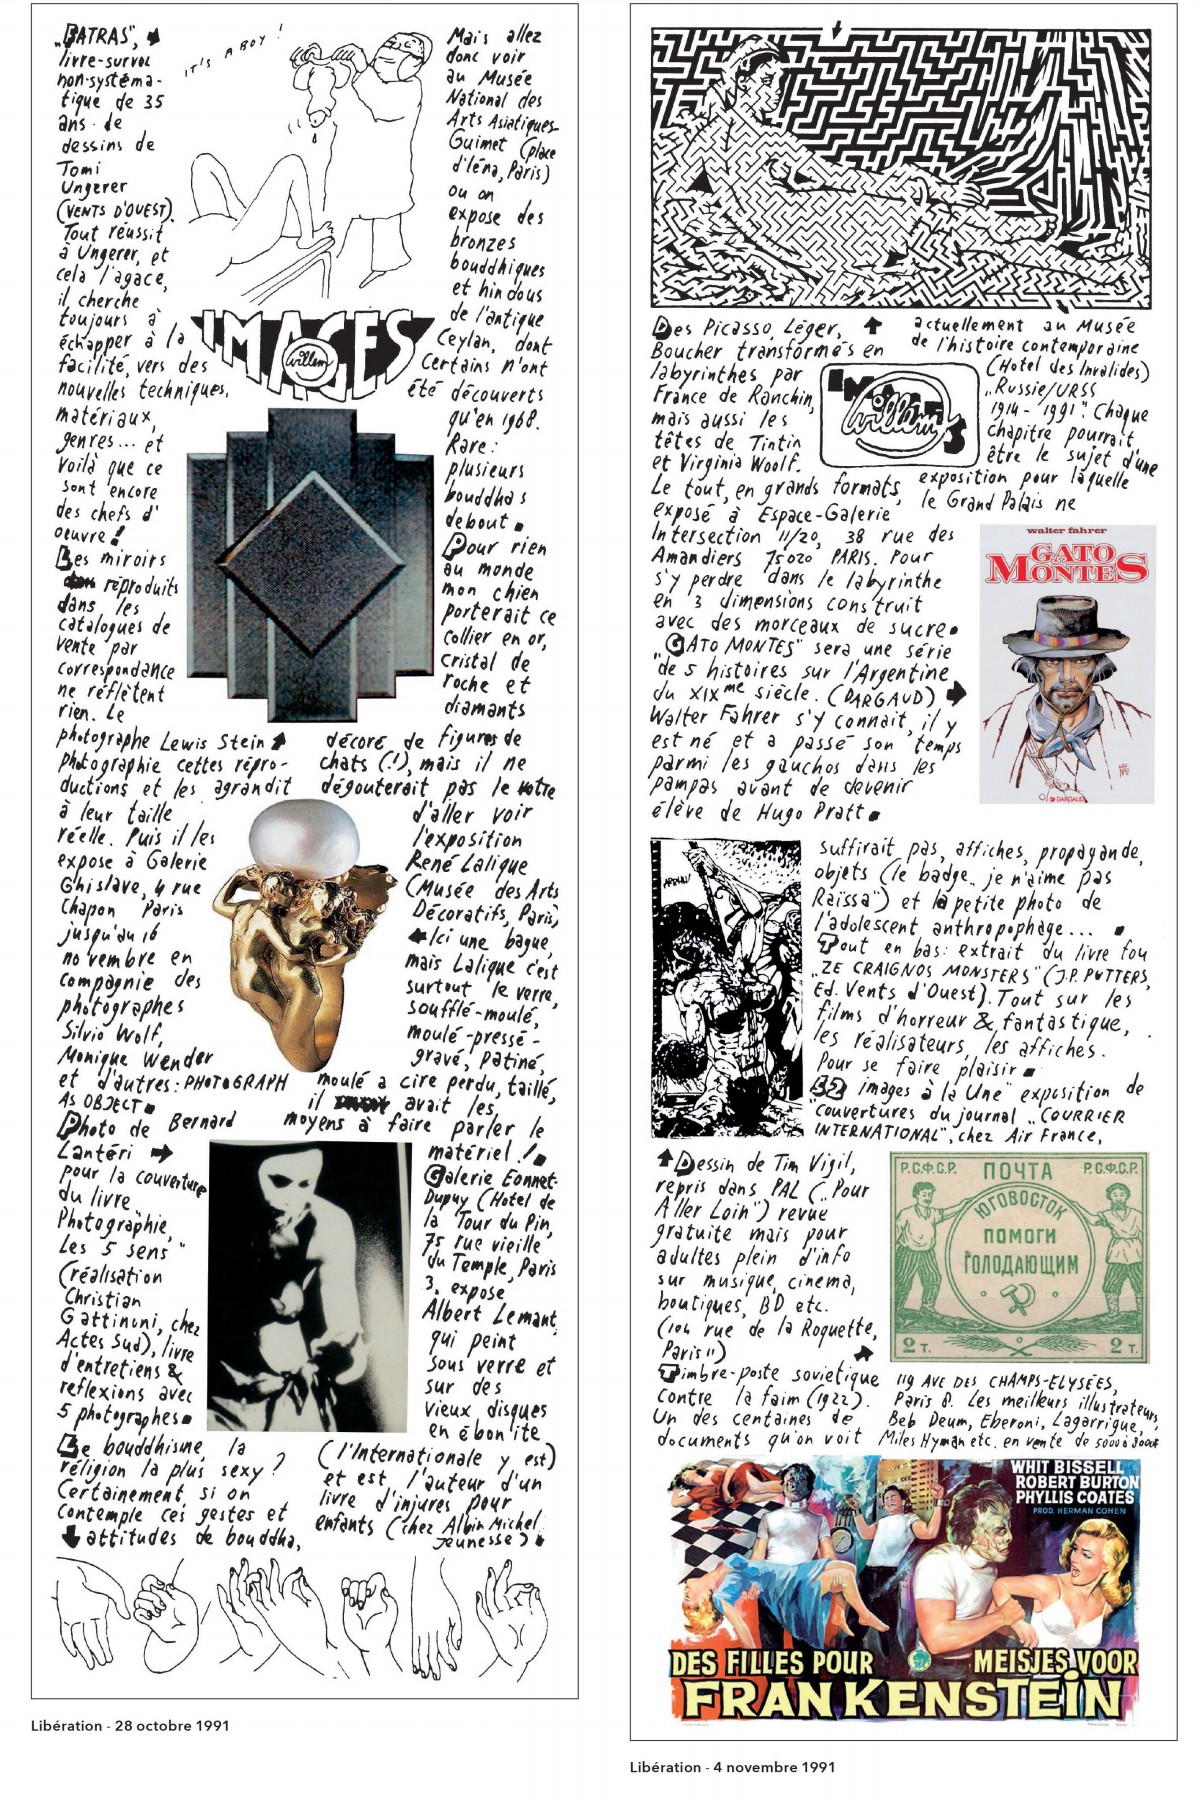 „FATRAS",
livre-survol
non-systéma-
tique de 35
ans de
dessins de
Tomi
Ungerer
(VENTS D'OUEST).
Tout réussit
à Ungerer, et
cela l'agace,
il cherche
toujours à
échapper à la
facilité, vers des
nouvelles techniques,
matériaux,
genres... et
voilà que ce
sont encore
des chefs d'
oeuvre!
IT'S A BOY!
IMAGES
willem
Les miroirs
réproduits
dans les
catalogues de
vente par
correspondance
ne réflètent
rien. Le
photographe Lewis Stein
photographie cettes répro-
ductions et les agrandit
à leur taille
réelle. Puis il les
expose à Galerie
Ghislave, 4 rue
Chapon Paris
jusqu'au 16
novembre en
compagnie des
photographes
Silvio Wolf,
Monique Wender
et d'autres: PHOTOGRAPH
AS OBJECT.
Photo de Bernard
Lantéri
pour la couverture
du livre
"Photographie,
Les 5 sens"
(réalisation
Christian
Gattinoni, chez
Actes Sud), livre
d'entretiens &
reflexions avec
5 photographes.
Le bouddhisme, la
réligion la plus sexy?
Certainement si on
contemple ces gestes et
attitudes de bouddha,
Mais allez
donc voir
au Musée
National des
Arts Asiatiques-
Guimet (place
d'Iéna, Paris)
ou on
expose des
bronzes
bouddhiques
et hindous
de l'antique
Ceylan, dont
Certains n'ont
été découverts
qu'en 1968.
Rare:
plusieurs
bouddhas
debout.
Pour rien
au monde
mon chien
porterait ce
collier en or,
cristal de
roche et
diamants
décoré de figures de
chats (!), mais il ne
dégouterait pas le votre
d'aller voir
l'exposition
René Lalique
(Musée des Arts
Décoratifs, Paris)
Ici une bague,
mais Lalique c'est
surtout le verre,
soufflé-moulé,
moulé-pressé-
gravé, patiné,
moulé a cire perdu, taillé,
il avait les
moyens à faire parler le
matériel!
Galerie Eonnet-
Dupuy (Hotel de
la Tour du Pin,
75 rue vieille
du Temple, Paris
3, expose
Albert Lemant,
qui peint
sous verre et
sur des
vieux disques
en ébonite
(l'Internationale y est)
et est l'auteur d'un
livre d'injures pour
enfants (chez Albin Michel
Jeunesse).
Libération - 28 octobre 1991
Des Picasso, Léger,
Boucher transformés en
labyrinthes par
France de Ranchin,
mais aussi les
têtes de Tintin
et Virginia Woolf.
Le tout, en grands formats,
exposé à Espace-Galerie
Intersection 11/20, 38 rue des
Amandiers 75020 PARIS. Pour
s'y perdre dans le labyrinthe
en 3 dimensions construit
avec des morceaux de sucre.
IMAGES
willem
„GATO MONTES" sera une série
de 5 histoires sur l'Argentine
du XIXme siècle. (DARGAUD)
Walter Fahrer s'y connait, il y
est né et a passé son temps
parmi les gauchos dans les
pampas avant de devenir
élève de Hugo Pratt.
walter fahrer
GATO
MONTES
DARGAUD
actuellement au Musée
de l'histoire contemporaine
(Hotel des Invalides)
„Russie/URSS
1914-1991". Chaque
chapitre pourrait
être le sujet d'une
exposition pour laquelle
le Grand Palais ne
suffirait pas, affiches, propagande,
objets (le badge „je n'aime pas
Raïssa") et la petite photo de
l'adolescent anthropophage...
Tout en bas: extrait du livre fou
„ZE CRAIGNOS MONSTERS" (J.P. PUTTERS,
Ed. Vents d'Ouest). Tout sur les
films d'horreur & fantastique,
les réalisateurs, les affiches.
Pour se faire plaisir.
„32 images à la Une" exposition de
couvertures du journal „COURRIER
INTERNATIONAL", chez Air France,
Dessin de Tim Vigil,
repris dans PAL („Pour
Aller Loin") revue
gratuite mais pour
adultes plein d'info
sur musique, cinema,
boutiques, BD etc.
(104 rue de la Roquette,
Paris 11)
Timbre-poste sovietique
contre la faim (1922).
Un des centaines de
documents qu'on voit
Р.С.Ф.С.Р. ПОЧТА Р.С.Ф.С.Р.
ЮГОВОСТОК
ПОМОГИ
ГОЛОДАЮЩИМ
2 Т. 2 Т.
119 AVE DES CHAMPS-ELYSÉES,
Paris 8. Les meilleurs illustrateurs,
Beb Deum, Eberoni, Lagarrigue,
Miles Hyman etc. en vente de 5000 à 30000F
WHIT BISSELL
ROBERT BURTON
PHYLLIS COATES
PROD. HERMAN COHEN
DES FILLES POUR MEISJES VOOR
FRANKENSTEIN
Libération - 4 novembre 1991